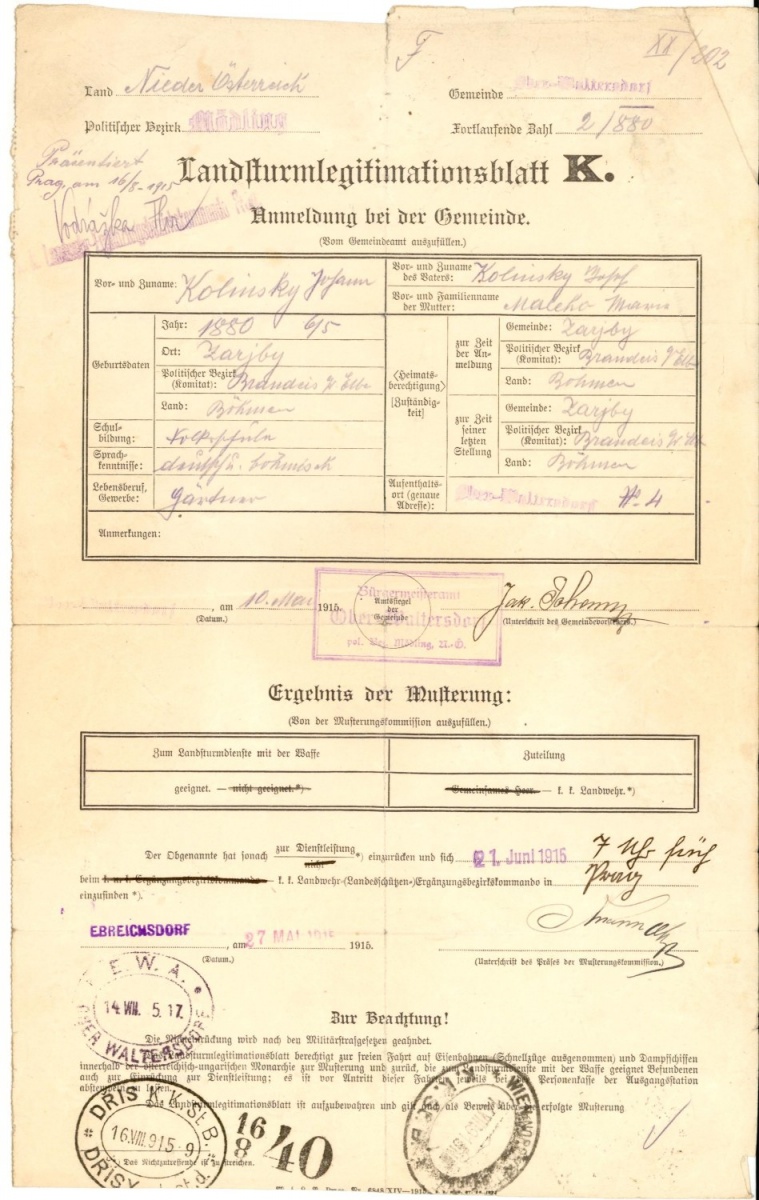 F XX/202
Land Nieder Österreich
Gemeinde Ober-Waltersdorf
Politischer Bezirk Mödling
Fortlaufende Zahl 2/880
Präsentiert
Prag, am 16/8 1915
Landsturmlegitimationsblatt K.
Anmeldung bei der Gemeinde.
(Vom Gemeindeamt auszufüllen.)
Vor- und Zuname: Kolinsky Johann
Vor- und Zuname des Vaters: Kolinsky Josef
Vor- und Familienname der Mutter: Marie
Geburtsdaten
Jahr: 1880 6/5
Ort: Zarjby
Politischer Bezirk (Komitat): Brandeis Elbe
Land: Böhmen
<Heimatsberechtigung>
[Zuständigkeit]
zur Zeit der Anmeldung
Gemeinde: Zarjby
Politischer Bezirk (Komitat): Brandeis
Land: Böhmen
zur Zeit seiner letzten Stellung
Gemeinde: Zarjby
Politischer Bezirk (Komitat): Brandeis
Land: Böhmen
Schulbildung: Volksschule
Sprachkenntnisse: deutsch u. böhmisch
Lebensberuf, Gewerbe: Gärtner
Aufenthaltsort (genaue Adresse): Ober-Waltersdorf No 4
Anmerkungen:
Ober-Waltersdorf, am 10. Mai 1915.
(Datum.)
Bürgermeisteramt
Ober-Waltersdorf
pol. Bez. Mödling, N.-Ö.
Amtssiegel
der
Gemeinde
(Unterschrift des Gemeindevorstehers.)
Ergebnis der Musterung:
(Von der Musterungskommission auszufüllen.)
Zum Landsturmdienste mit der Waffe
Zuteilung
geeignet. — nicht geeignet.*)
Gemeinsames Heer. — k. k. Landwehr.*)
Der Obgenannte hat sonach zur Dienstleistung nicht *) einzurücken und sich 21. Juni 1915 7 Uhr früh
beim k. u. k. Ergänzungsbezirkskommando — k. k. Landwehr-(Landesschützen-)Ergänzungsbezirkskommando in Prag
einzufinden *).
EBREICHSDORF, am 27 MAI 1915 1915.
(Datum.)
(Unterschrift des Präses der Musterungskommission.)
E. W. A.
14.VIII. 5.17.
OBER WALTERSDORF
Zur Beachtung!
Die Nichteinrückung wird nach den Militärstrafgesetzen geahndet.
Das Landsturmlegitimationsblatt berechtigt zur freien Fahrt auf Eisenbahnen (Schnellzüge ausgenommen) und Dampfschiffen
innerhalb der österreichisch-ungarischen Monarchie zur Musterung und zurück, die zum Landsturmdienste mit der Waffe geeignet Befundenen
auch zur Einrückung zur Dienstleistung; es ist vor Antritt dieser Fahrten jeweils bei der Personenkasse der Ausgangsstation
abstempeln zu lassen.
Das Landsturmlegitimationsblatt ist aufzubewahren und gilt auch als Beweis über die erfolgte Musterung
DRIS K.K. St.B.
16.VIII.915-9
DRISY
16
8
40
WIEN
*) Das Nichtzutreffende ist zu streichen.